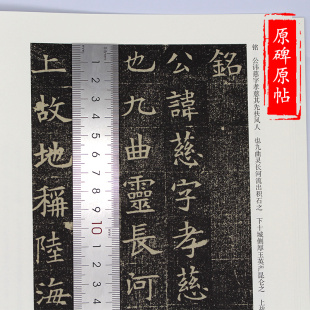 原碑
原帖
銘
公諱慈字孝慈
也九曲靈長河
上故地稱陸海
铭 公讳慈字孝慈其先扶风人 也九曲灵长河流出积石之 下十城侧厚玉英产昆仑之 上
1 2 3 4 5 6 7 8 9 10